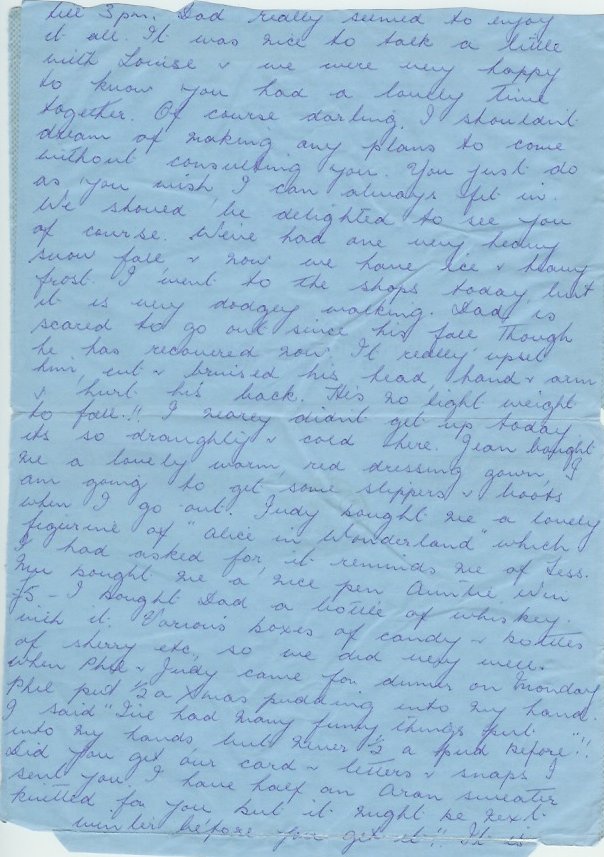 till 3pm. Dad really seemed to enjoy
it all. It was nice to talk a little
with Louise & we were very happy
to know you had a lovely time
together. Of course darling, I shouldn't
dream of making any plans to come
without consulting you. You just do
as you wish, I can always fit in.
We should be delighted to see you
of course. We've had one very heavy
snow fall & now we have ice & heavy
frost. I went to the shops today, but
it is very dodgey walking. Dad is
scared to go out since his fall though
he has recovered now. It really upset
him, cut & bruised his head, hand & arm
& hurt his back. He's no light weight
to fall.!! I nearly didn't get up today
its so draughty & cold here. Jean bought
me a lovely warm, red dressing gown, I
am going to get some slippers & boots
when I go out. Judy bought me a lovely
figurine of "Alice in Wonderland" which
I had asked for, it reminds me of Tess.
bought me a nice pen Auntie Win
£5 - I bought Dad a bottle of whiskey.
with it. Various boxes of candy & bottles
of sherry etc, so we did very well.
When Phil & Judy came for dinner on Monday
Phil put ½ a Xmas pudding into my hand.
I said "I've had many funny things put
into my hands but never ½ a pud before"!!
Did you get our card & letters & snaps I
sent you. I have half an Aran sweater
knitted for you but it might be next
winter before you get it!! It is